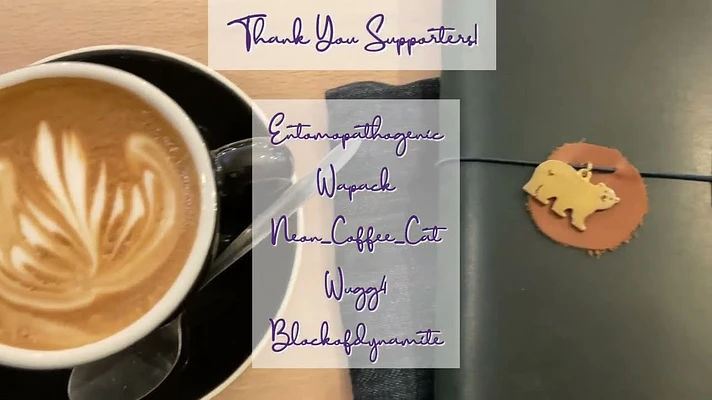 Thank You Supporters!
Entomopathogenic
Wapack
Neon_Coffee_Cat
Wugg4
Blockofdynamite